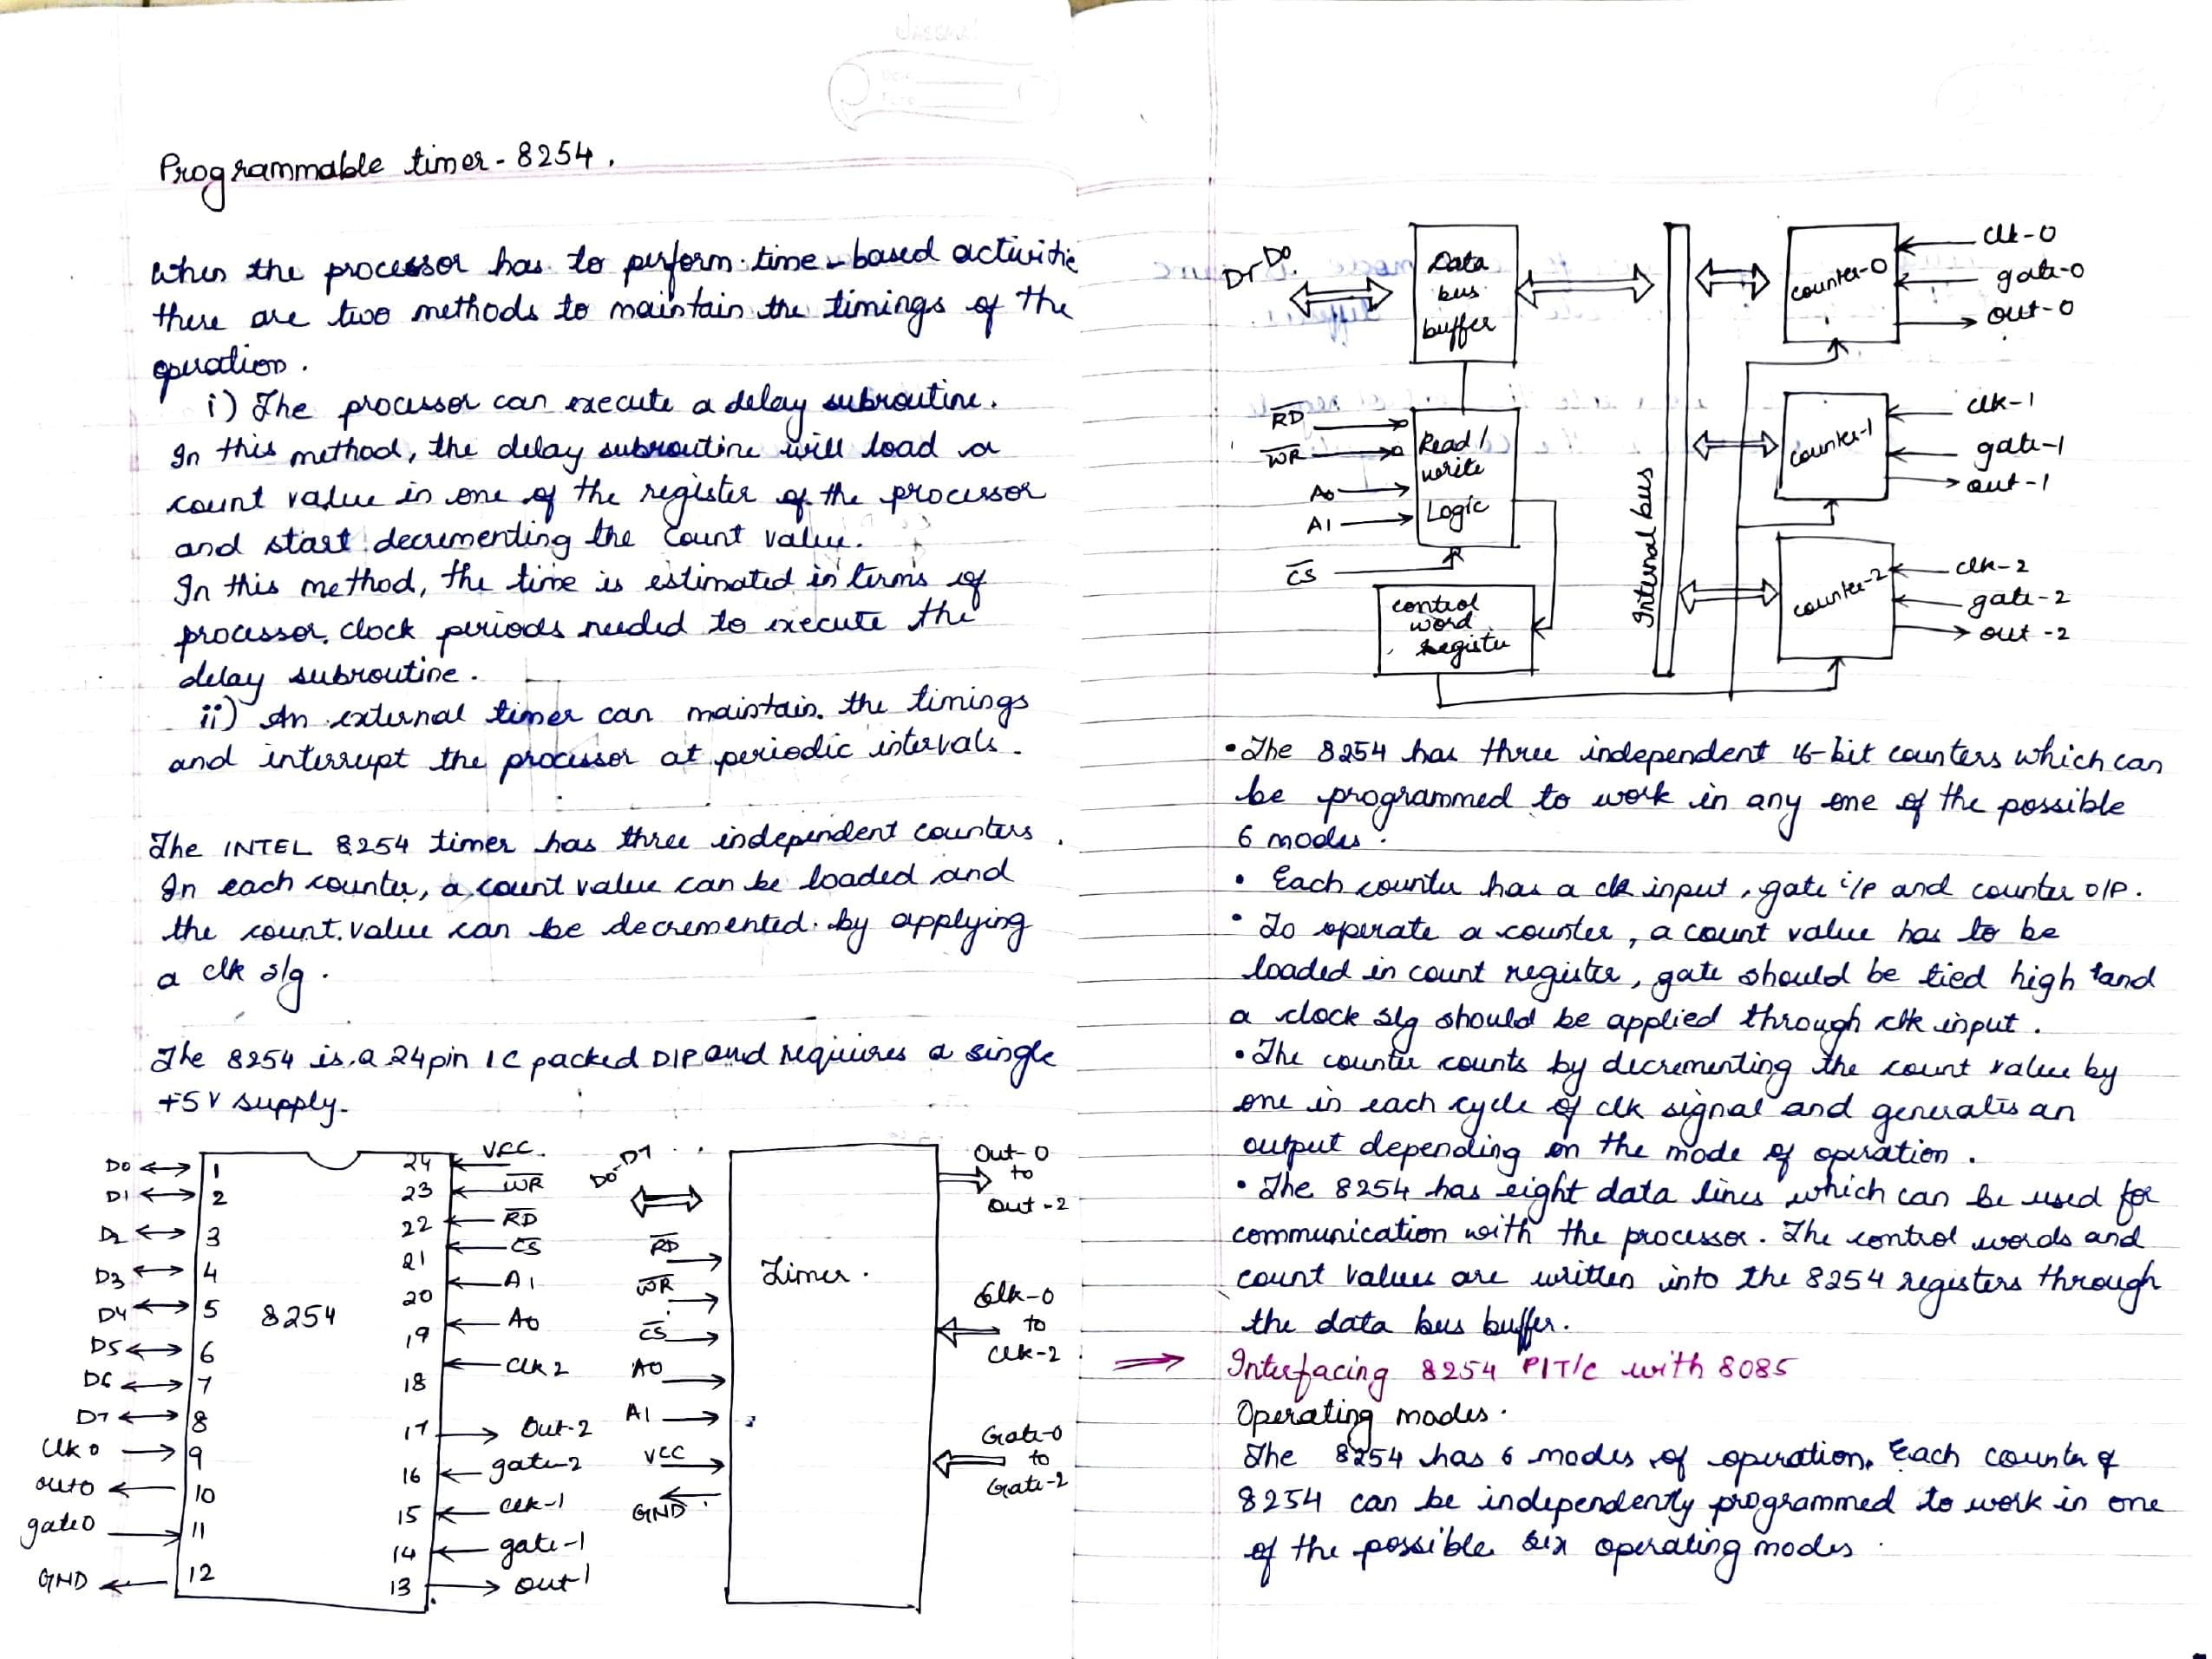 Programmable timer - 8254.
When the processor has to perform time-based activitie
there are two methods to maintain the timings of the
operation.
i) The processor can execute a delay subroutine.
In this method, the delay subroutine will load a
count value in one of the register of the processor
and start decrementing the count value.
In this method, the time is estimated in terms of
processor clock periods needed to execute the
delay subroutine.
ii) An external timer can maintain the timings
and interrupt the processor at periodic intervals.
The INTEL 8254 timer has three independent counters.
In each counter, a count value can be loaded and
the count value can be decremented by applying
a clk s/g.
The 8254 is a 24 pin IC packed DIP and requires a single
+5V supply.
D0 1 24 VCC
D1 2 23 WR
D2 3 22 RD
D3 4 21 CS
D4 5 20 A1
D5 6 19 A0
D6 7 18 Clk 2
D7 8 17 Out-2
Clk 0 9 16 gate-2
out0 10 15 clk-1
gate0 11 14 gate-1
GND 12 13 out1
8254
D0-D7
RD
WR
CS
A0
A1
VCC
GND
Timer.
Out-0
to
Out-2
Clk-0
to
Clk-2
Gate-0
to
Gate-2
D7-D0.
Data
bus
buffer
RD
WR
A0
A1
CS
Read/
write
Logic
control
word
register
Internal bus
counter-0
clk-0
gate-0
out-0
counter-1
clk-1
gate-1
out-1
counter-2
clk-2
gate-2
out-2
• The 8254 has three independent 16-bit counters which can
be programmed to work in any one of the possible
6 modes.
• Each counter has a clk input, gate i/p and counter o/p.
• To operate a counter, a count value has to be
loaded in count register, gate should be tied high and
a clock s/g should be applied through clk input.
• The counter counts by decrementing the count value by
one in each cycle of clk signal and generates an
output depending on the mode of operation.
• The 8254 has eight data lines which can be used for
communication with the processor. The control words and
count values are written into the 8254 registers through
the data bus buffer.
⇒ Interfacing 8254 PIT/C with 8085
Operating modes.
The 8254 has 6 modes of operation. Each counter of
8254 can be independently programmed to work in one
of the possible six operating modes.